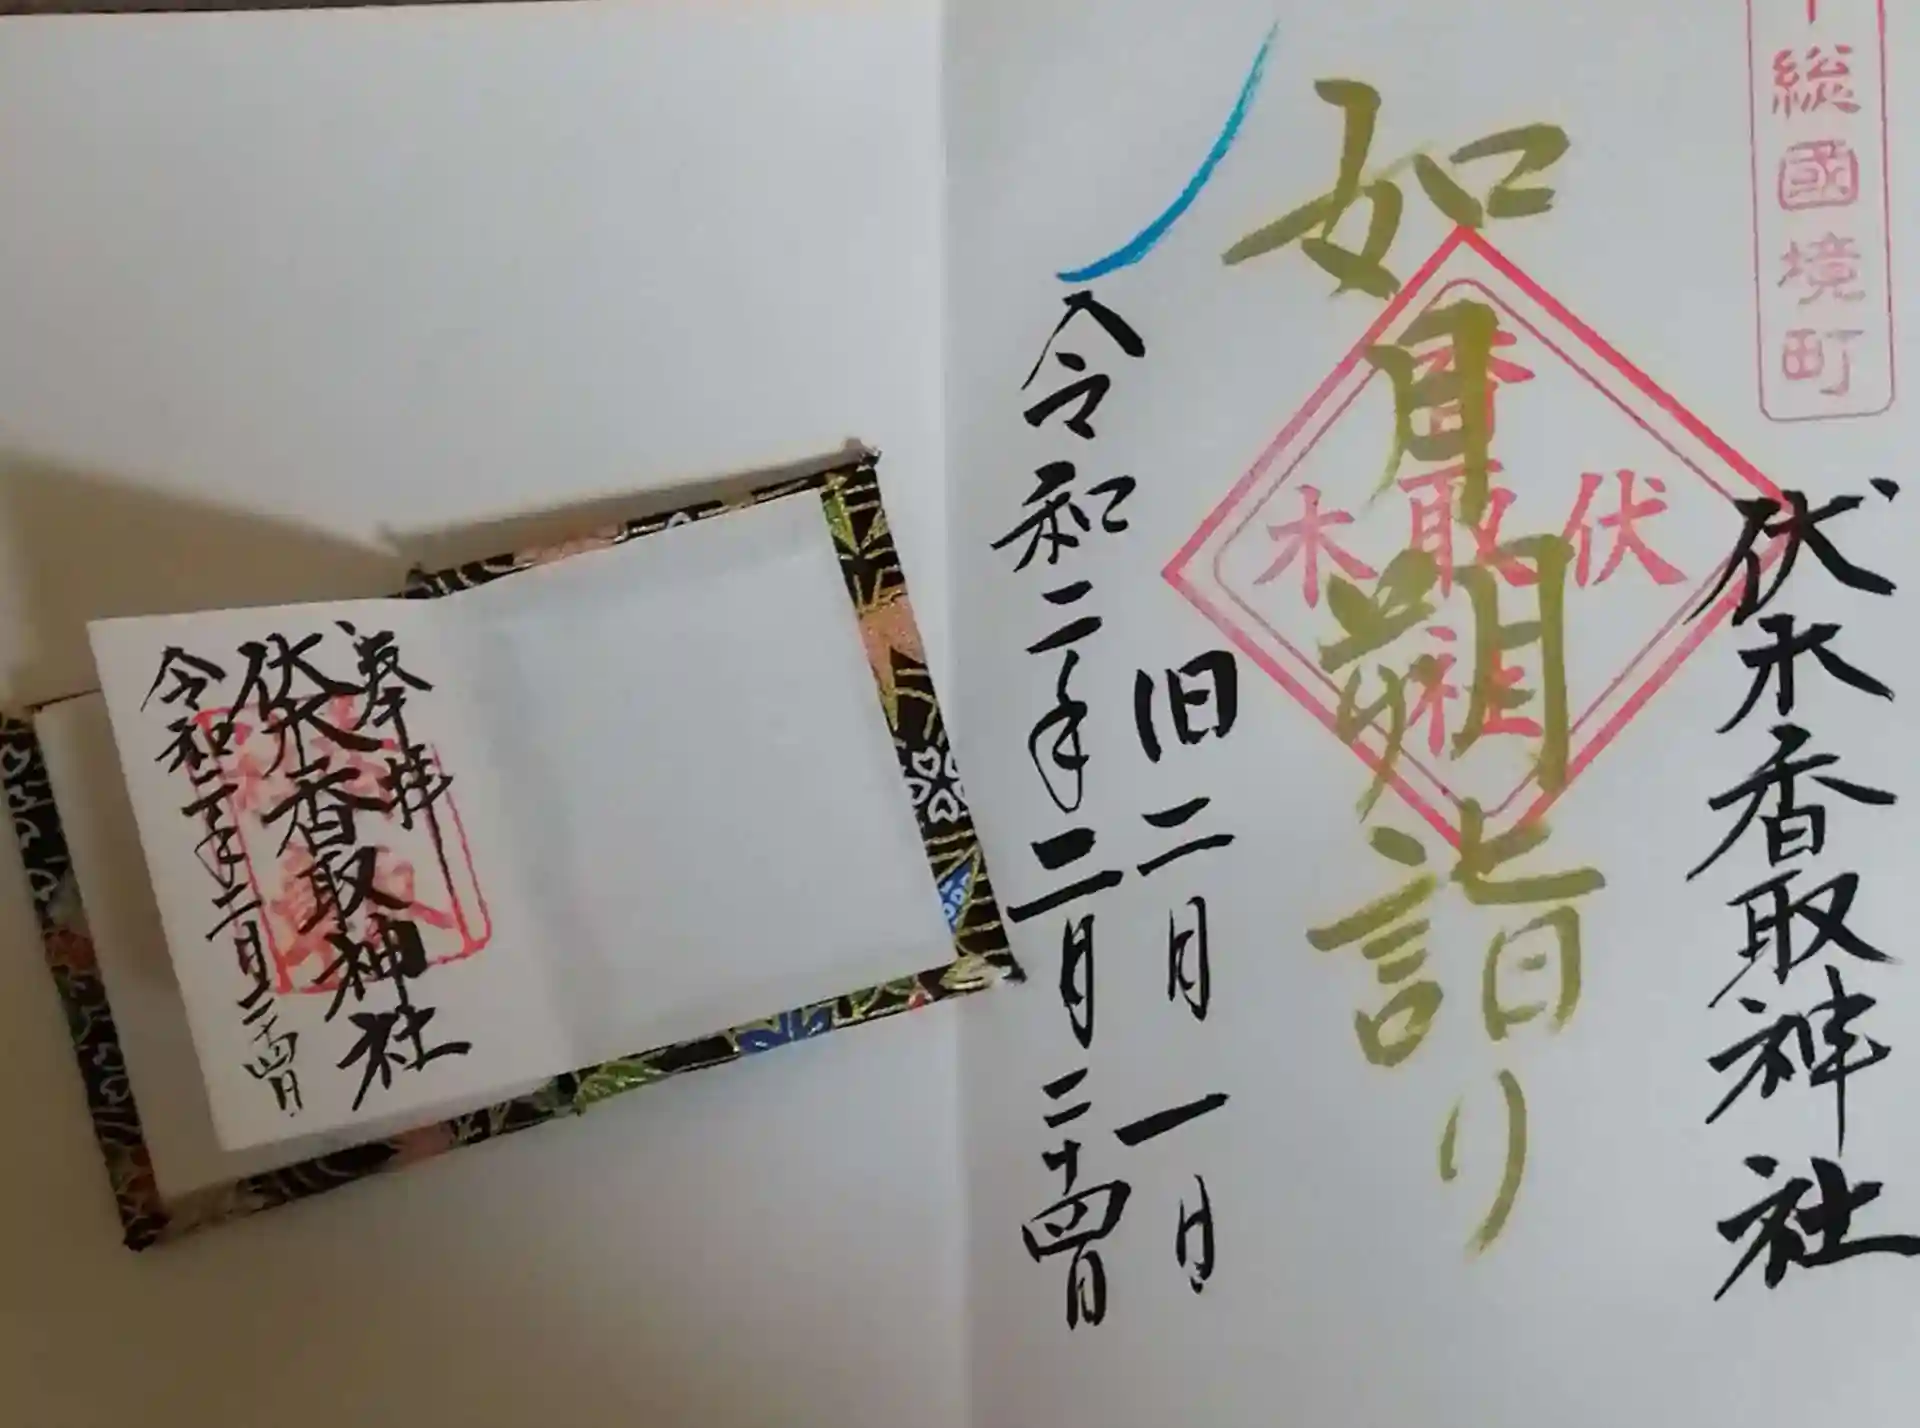 下総國境町
伏木香取神社
如月朔詣り
香取社
伏木
旧二月一日
令和二年二月二十四日
奉拝
伏木香取神社
令和二年二月二十四日